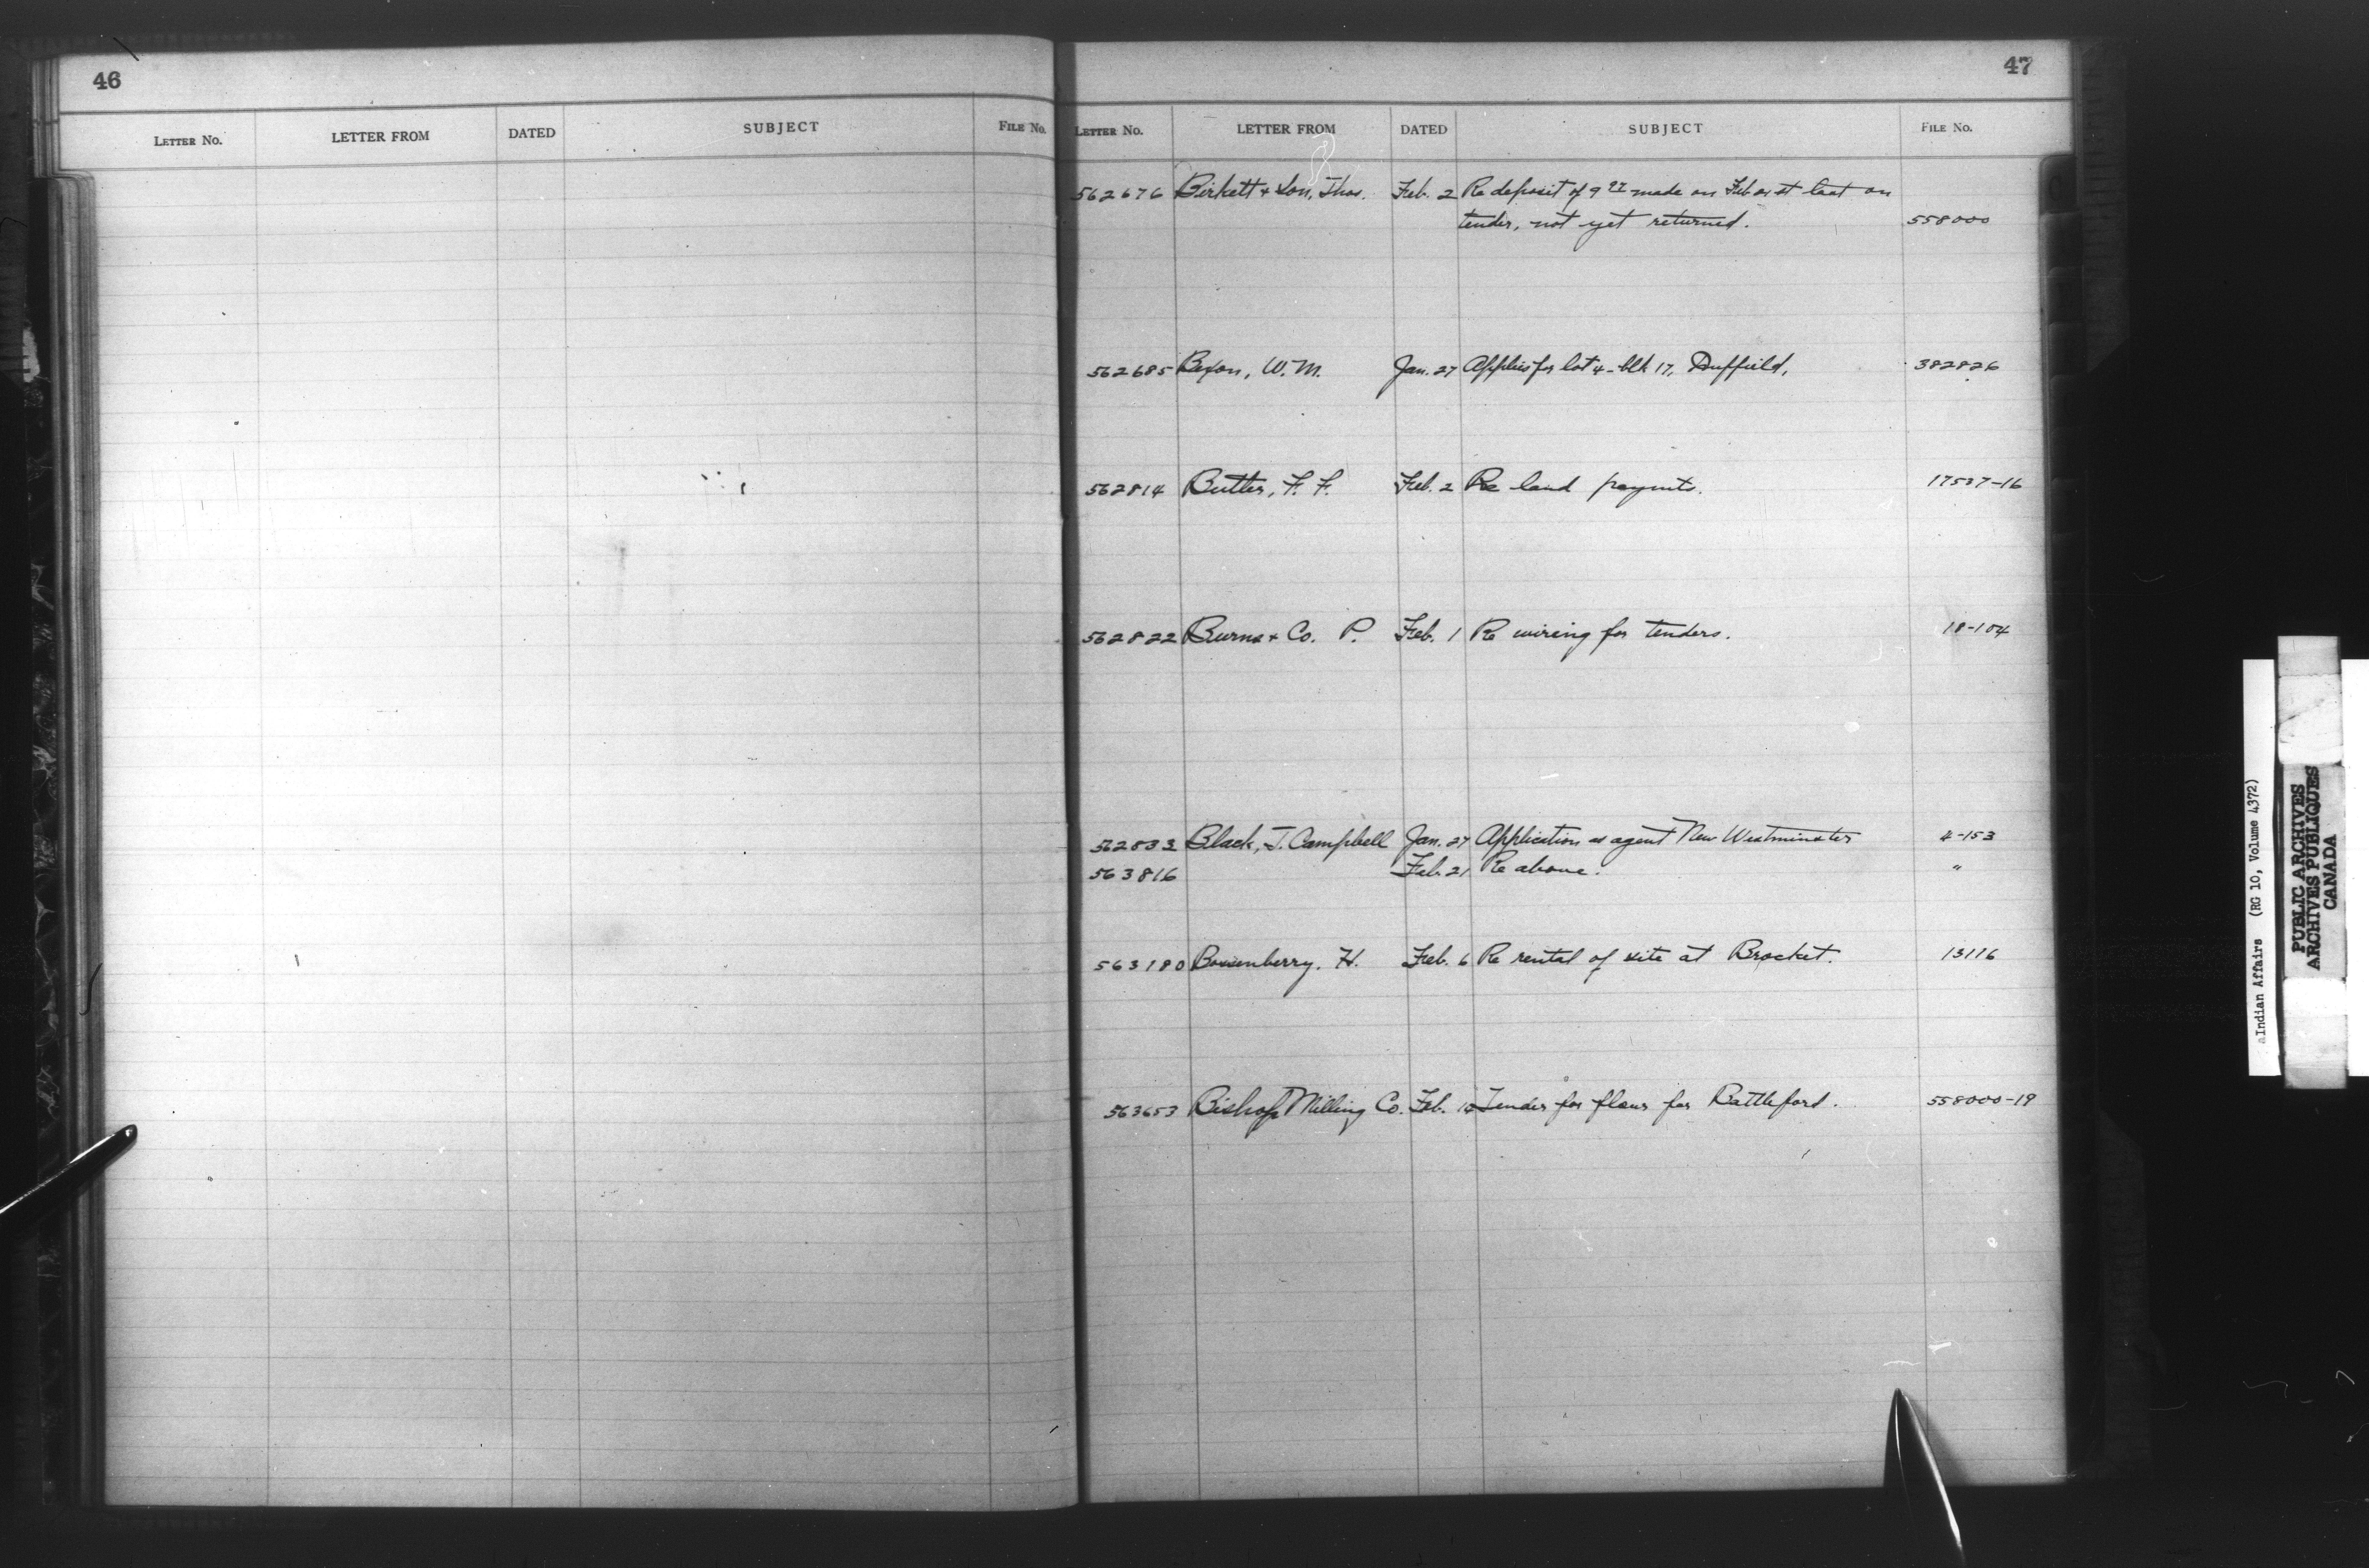 46
LETTER No. LETTER FROM DATED SUBJECT FILE No.
47
LETTER No. LETTER FROM DATED SUBJECT FILE No.
562676 Birkett & Son, Thos. Feb. 2 Re deposit of made on Feb last on
tender, not yet returned. 558000
562685 Bexon, W. M. Jan. 27 Applies for lot 4 - blk 17, Duffield. 382826
562814 Butler, F. F. Feb. 2 Re land paymts. 17537-16
562822 Burns & Co. P. Feb. 1 Re wiring for tenders. 18-104
562833 Black, J. Campbell Jan. 27 Application as agent New Westminster 4-153
563816 Feb. 21 Re above. "
563180 H. Feb. 6 Re rental of site at Brocket. 13116
563653 Bishop Milling Co. Feb. Tender for flour for Battleford. 558000-19
aIndian Affairs (RG 10, Volume 4372)
PUBLIC ARCHIVES
ARCHIVES PUBLIQUES
CANADA